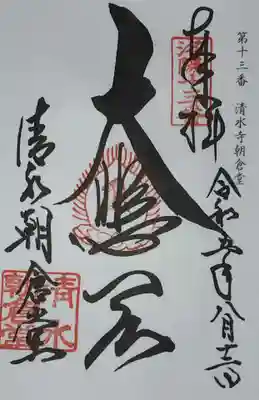 第十三番 清水寺朝倉堂
奉拝 令和五年八月十三日
大悲閣
清水朝倉堂
清水
朝倉堂